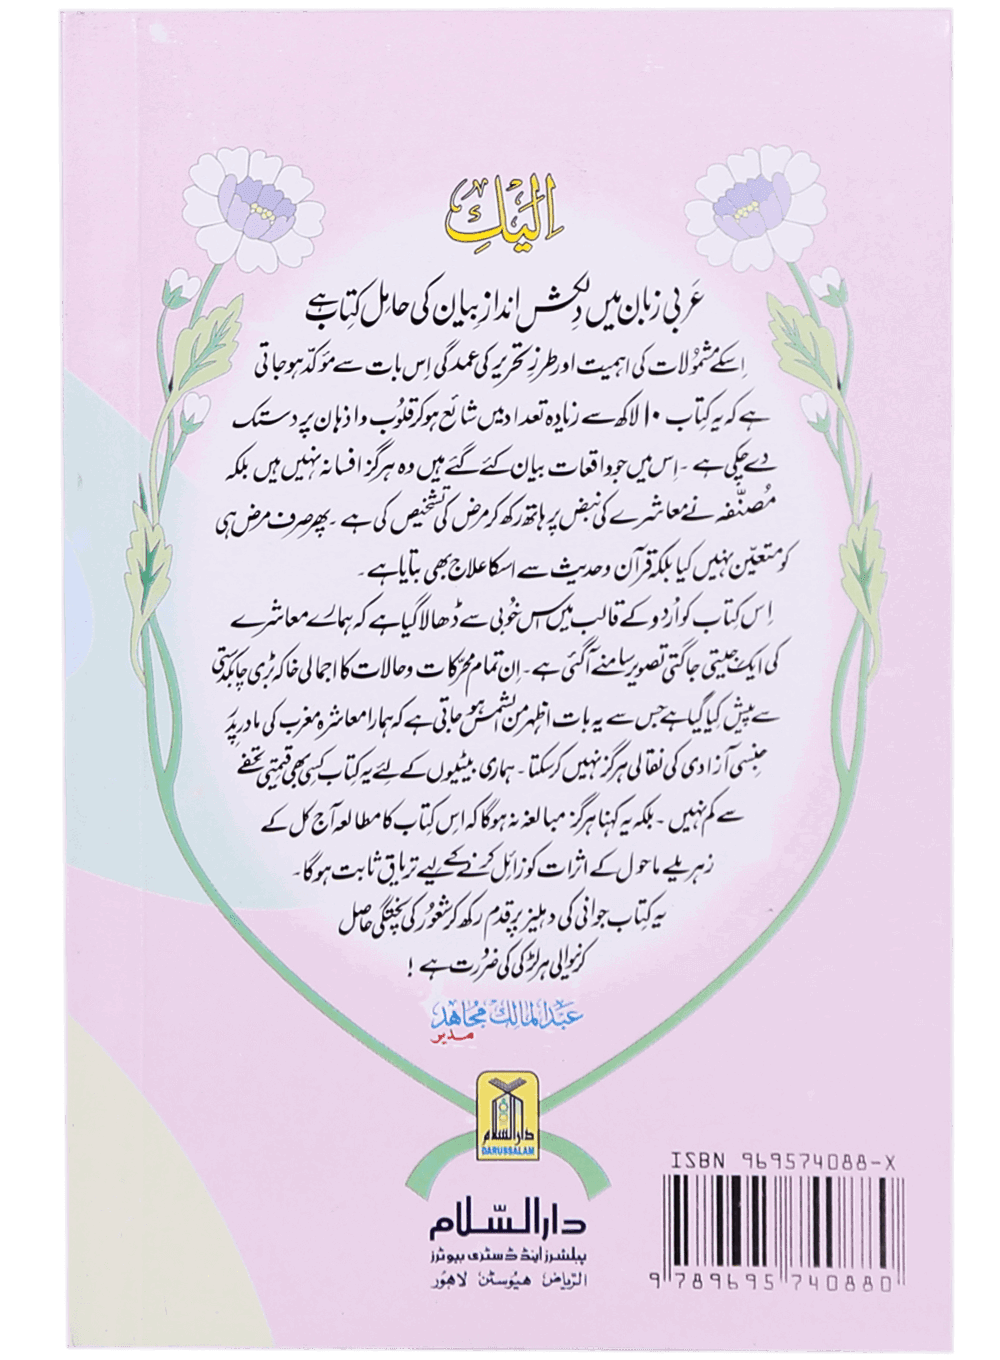 اِلَيْكِ
عَربی زبان میں دِلکش اندازِ بیان کی حامل کتاب ہے
اِسکے مشمُولات کی اہمیت اور طرزِ تحریر کی عمدگی اِس بات سے مؤکّد ہو جاتی
ہے کہ یہ کتاب ۱۰ لاکھ سے زیادہ تعداد میں شائع ہو کر قلُوب و اذہان پر دستک
دے چکی ہے ۔ اِس میں جو واقعات بیان کئے گئے ہیں وہ ہرگز افسانہ نہیں ہیں بلکہ
مُصنّفہ نے معاشرے کی نبض پر ہاتھ رکھ کر مرض کی تشخیص کی ہے ۔ پھر صرف مرض ہی
کو متعیّن نہیں کیا بلکہ قرآن و حدیث سے اسکا علاج بھی بتایا ہے ۔
اِس کتاب کو اُردُو کے قالب میں اس خُوبی سے ڈھالا گیا ہے کہ ہمارے معاشرے
کی ایک جیتی جاگتی تصویر سامنے آگئی ہے ۔ اِن تمام محرّکات و حالات کا اجمالی خاکہ بڑی چابکدستی
سے پیش کیا گیا ہے جس سے یہ بات اظہر من الشمس ہو جاتی ہے کہ ہمارا معاشرہ مغرب کی مادر پدر
جنسی آزادی کی نقالی ہرگز نہیں کر سکتا ۔ ہماری بیٹیوں کے لئے یہ کتاب کسی بھی قیمتی تحفے
سے کم نہیں ۔ بلکہ یہ کہنا ہرگز مبالغہ نہ ہوگا کہ اس کتاب کا مطالعہ آج کل کے
زہریلے ماحول کے اثرات کو زائل کرنے کے لیے تریاق ثابت ہوگا ۔
یہ کتاب جوانی کی دہلیز پر قدم رکھ کر شعُور کی پختگی حاصل
کرنیوالی ہر لڑکی کی ضرُورت ہے !
عبدالمالک مجاھد
مدیر
دارالسلام
DARUSSALAM
دارالسّلام
پبلشرز اینڈ ڈسٹری بیوٹرز
الرّیاض ھیُوسٹن لاھَور
ISBN 969574088-X
9 789695 740880